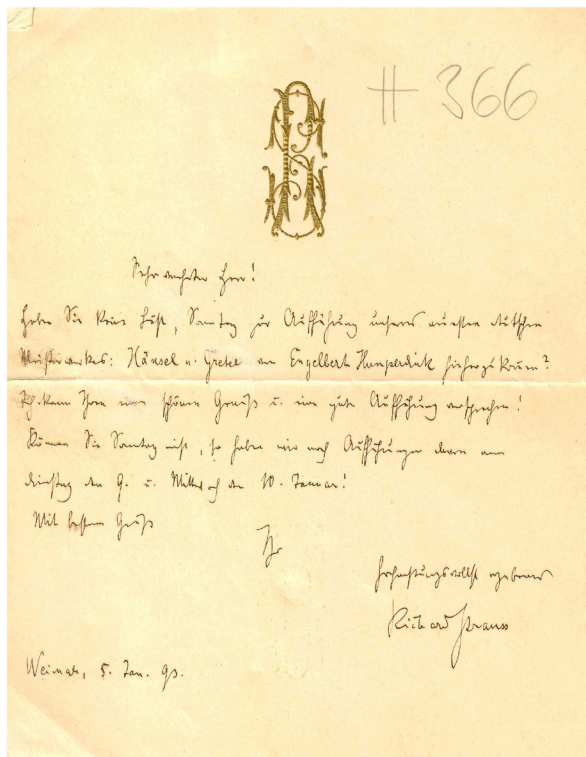 # 366
Sehr verehrter Herr!
Haben Sie keine Lust, Sonntag zur Aufführung unseres neuesten deutschen
Meisterwerkes: Hänsel u. Gretel von Engelbert Humperdink hierherzukommen?
Ich kann Ihnen einen schönen Genuß u. eine gute Aufführung versprechen!
Können Sie Sonntag nicht, so haben wir noch Aufführungen davon am
Dienstag den 9. u. Mittwoch den 10. Januar!
Mit bestem Gruß
Ihr
hochachtungsvollst ergebener
Richard Strauss
Weimar, 5. Jan. 93.